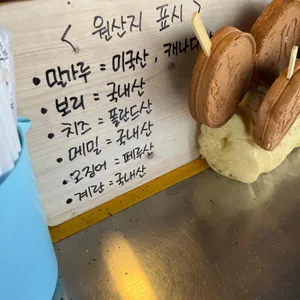 < 원산지 표시 >
• 밀가루 = 미국산, 캐나다
• 보리 = 국내산
• 치즈 = 폴란드산
• 메밀 = 국내산
• 오징어 = 페루산
• 계란 = 국내산